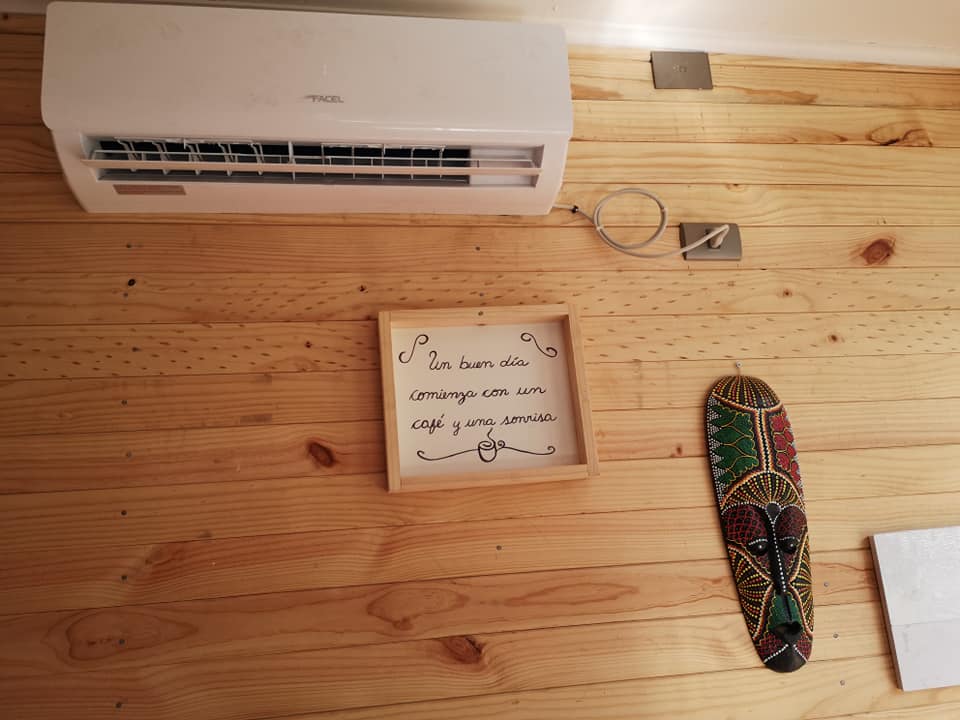 FACEL
Un buen día
comienza con un
café y una sonrisa